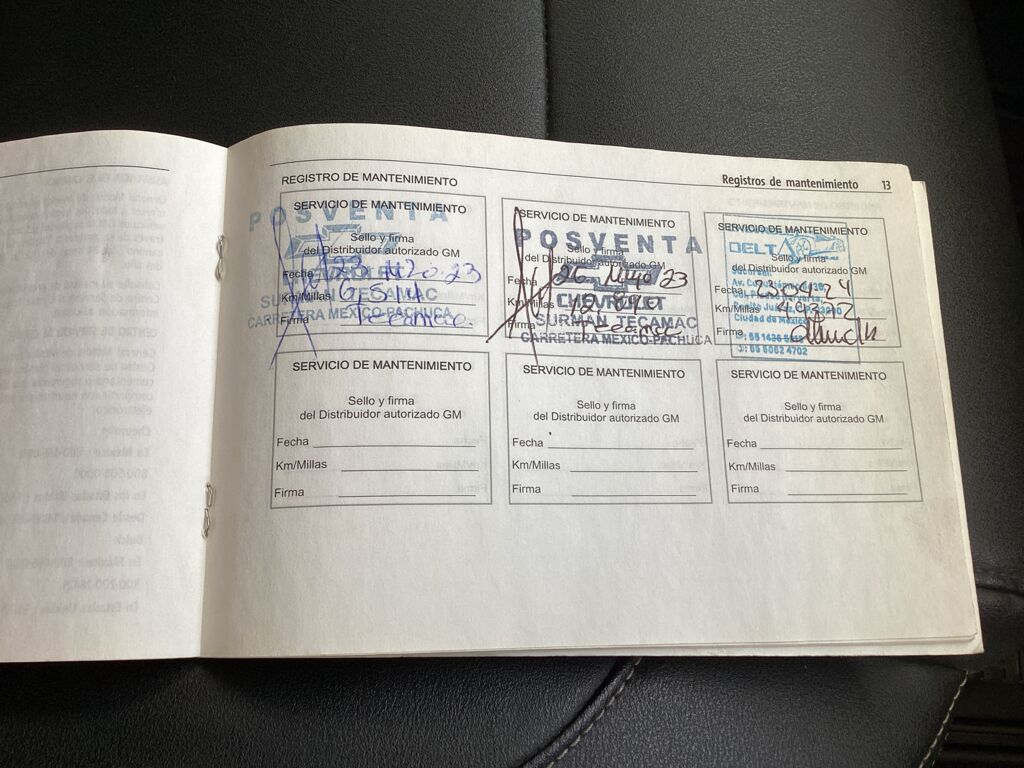 Registros de mantenimiento 13
REGISTRO DE MANTENIMIENTO
SERVICIO DE MANTENIMIENTO
POSVENTA
Sello y firma
del Distribuidor autorizado GM
Fecha
Km/Millas
SURMAN TECAMAC
Firma Tecamac.
CARRETERA MEXICO-PACHUCA
SERVICIO DE MANTENIMIENTO
POSVENTA
Sello y firma
del Distribuidor autorizado GM
Fecha 26 Mayo 23
Km/Millas
CHEVROLET
SURMAN TECAMAC
Firma Tecamac
CARRETERA MEXICO-PACHUCA
SERVICIO DE MANTENIMIENTO
DELTA
Sello y firma
del Distribuidor autorizado GM
Sucursal
Av. Cuauhtémoc
Fecha 23-04-24
Km/Millas
Benito Juárez, C.P.
Ciudad de México
Firma
55 6062 4702
SERVICIO DE MANTENIMIENTO
Sello y firma
del Distribuidor autorizado GM
Fecha
Km/Millas
Firma
SERVICIO DE MANTENIMIENTO
Sello y firma
del Distribuidor autorizado GM
Fecha
Km/Millas
Firma
SERVICIO DE MANTENIMIENTO
Sello y firma
del Distribuidor autorizado GM
Fecha
Km/Millas
Firma